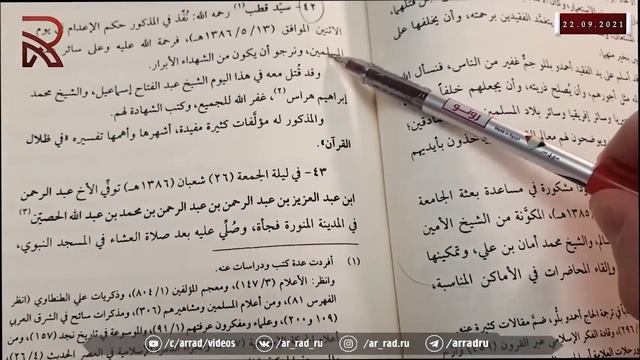 22.09.2021
٤٢- سيّد قطب (١) رحمه الله: نُفِّذ في المذكور حكم الإعدام في يوم
الاثنين الموافق (١٣/ ٥/ ١٣٨٦هـ)، فرحمة الله عليه وعلى سائر
المسلمين، ونرجو أن يكون من الشهداء الأبرار.
وقد قُتل معه في هذا اليوم الشيخ عبد الفتاح إسماعيل، والشيخ محمد
إبراهيم هراس (٢)، غفر الله للجميع، وكتب الشهادة لهم.
والمذكور له مؤلَّفات كثيرة مفيدة، أشهرها وأهمها تفسيره «في ظلال
القرآن».
٤٣- في ليلة الجمعة (٢٦) شعبان (١٣٨٦هـ) توفِّي الأخ عبد الرحمن
ابن عبد العزيز بن عبد الرحمن بن عبد الرحمن بن محمد بن عبد الله الحصيّن (٣)
في المدينة المنورة فجأة، وصُلِّي عليه بعد صلاة العشاء في المسجد النبوي،
(١) أفردت عدة كتب ودراسات عنه.
وانظر: الأعلام (١٤٧/٣)، ومعجم المؤلفين (٨٠٤/١)، وذكريات علي الطنطاوي (انظر
الفهرس ٨١)، ومن أعلام المسلمين ومشاهيرهم (٣٠٦)، ومذكرات سائح في الشرق العربي
(١٠٩ و٢٠٠)، وعلماء ومفكرون عرفتهم (٩١/١)، والموسوعة في تاريخ نجد (١٥٧)، ومن
بتغمَّد الفقيدين برحمته، وأن يخلفها على
أسلم على يد الفقيد أهدبللو جمٌّ غفير من الناس، فنسأل الله
من أجورهم، وأن يُصلح ذريته، وأن يجعلهم خلفاً
وسائر إفريقيا وسائر بلاد المسلمين
ويوضحون لهم معالم
يأخذون بأيديهم
مشكورة في مساعدة بعثة الجامعة
١٣٨٥هـ)، المكوَّنة من الشيخ الأمين
سالم، والشيخ محمد أمان بن علي، وتمكينها
وإلقاء المحاضرات في الأماكن المناسبة،
/c/arrad/videos
/ar_rad_ru
/ar_rad.ru
/arradru